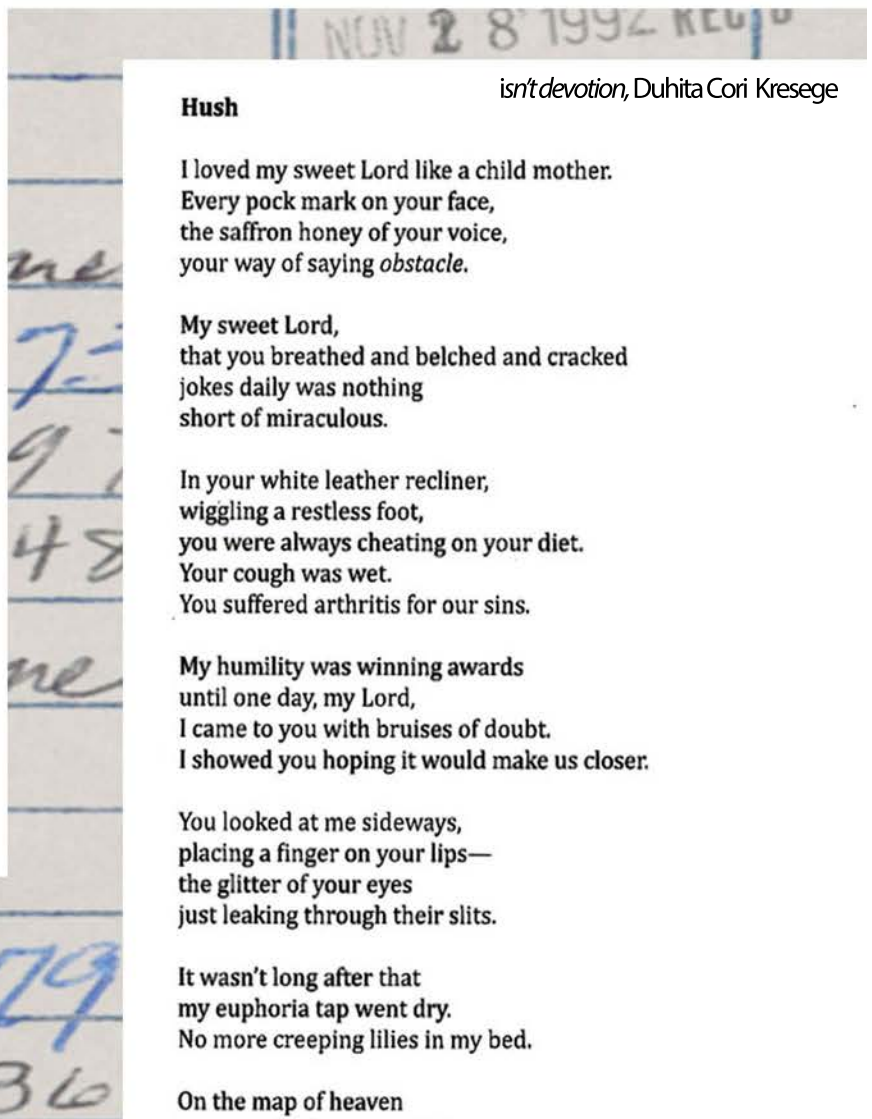 NOV 28 1992 REC'D
isn't devotion, Duhita Cori Kresege
Hush
I loved my sweet Lord like a child mother.
Every pock mark on your face,
the saffron honey of your voice,
your way of saying obstacle.
My sweet Lord,
that you breathed and belched and cracked
jokes daily was nothing
short of miraculous.
In your white leather recliner,
wiggling a restless foot,
you were always cheating on your diet.
Your cough was wet.
You suffered arthritis for our sins.
My humility was winning awards
until one day, my Lord,
I came to you with bruises of doubt.
I showed you hoping it would make us closer.
You looked at me sideways,
placing a finger on your lips—
the glitter of your eyes
just leaking through their slits.
It wasn't long after that
my euphoria tap went dry.
No more creeping lilies in my bed.
On the map of heaven
ne
73
97
48
ne
79
36